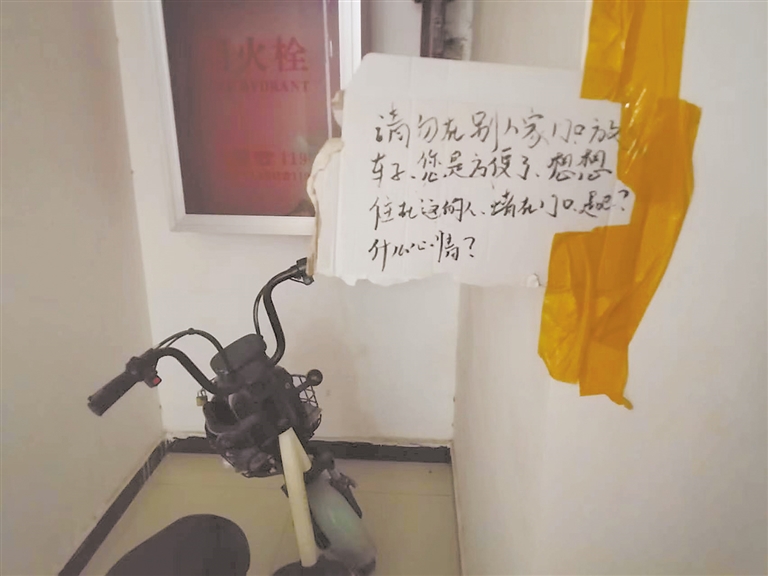 火栓
HYDRANT
119
请勿在别人家门口放
车子、您是方便了、想想
住在这的人、堵在门口是吧?
什么心情?